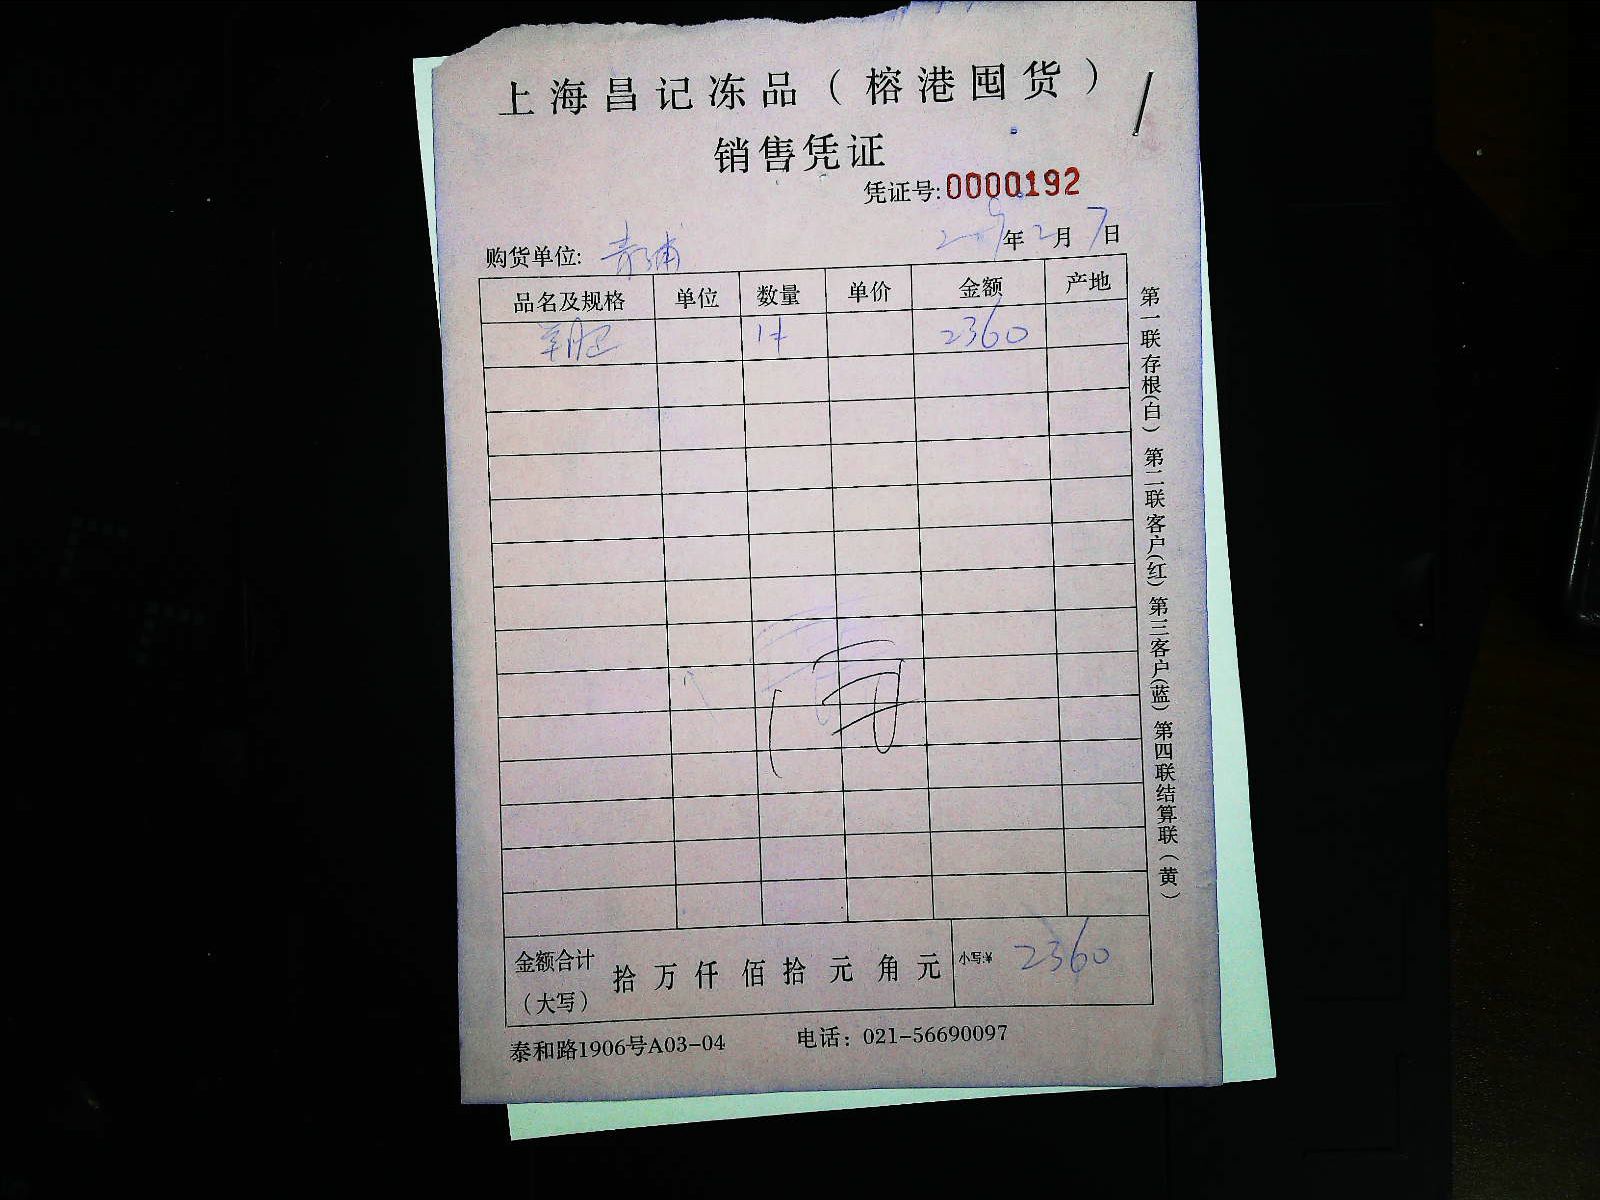 上海昌记冻品（榕港囤货）
销售凭证
凭证号:0000192
年2月7日
购货单位: 青浦
品名及规格 单位 数量 单价 金额 产地
2360
金额合计（大写） 拾 万 仟 佰 拾 元 角 元 小写:¥ 2360
泰和路1906号A03-04 电话：021-56690097
第一联存根(白) 第二联客户(红) 第三客户(蓝) 第四联结算联(黄)